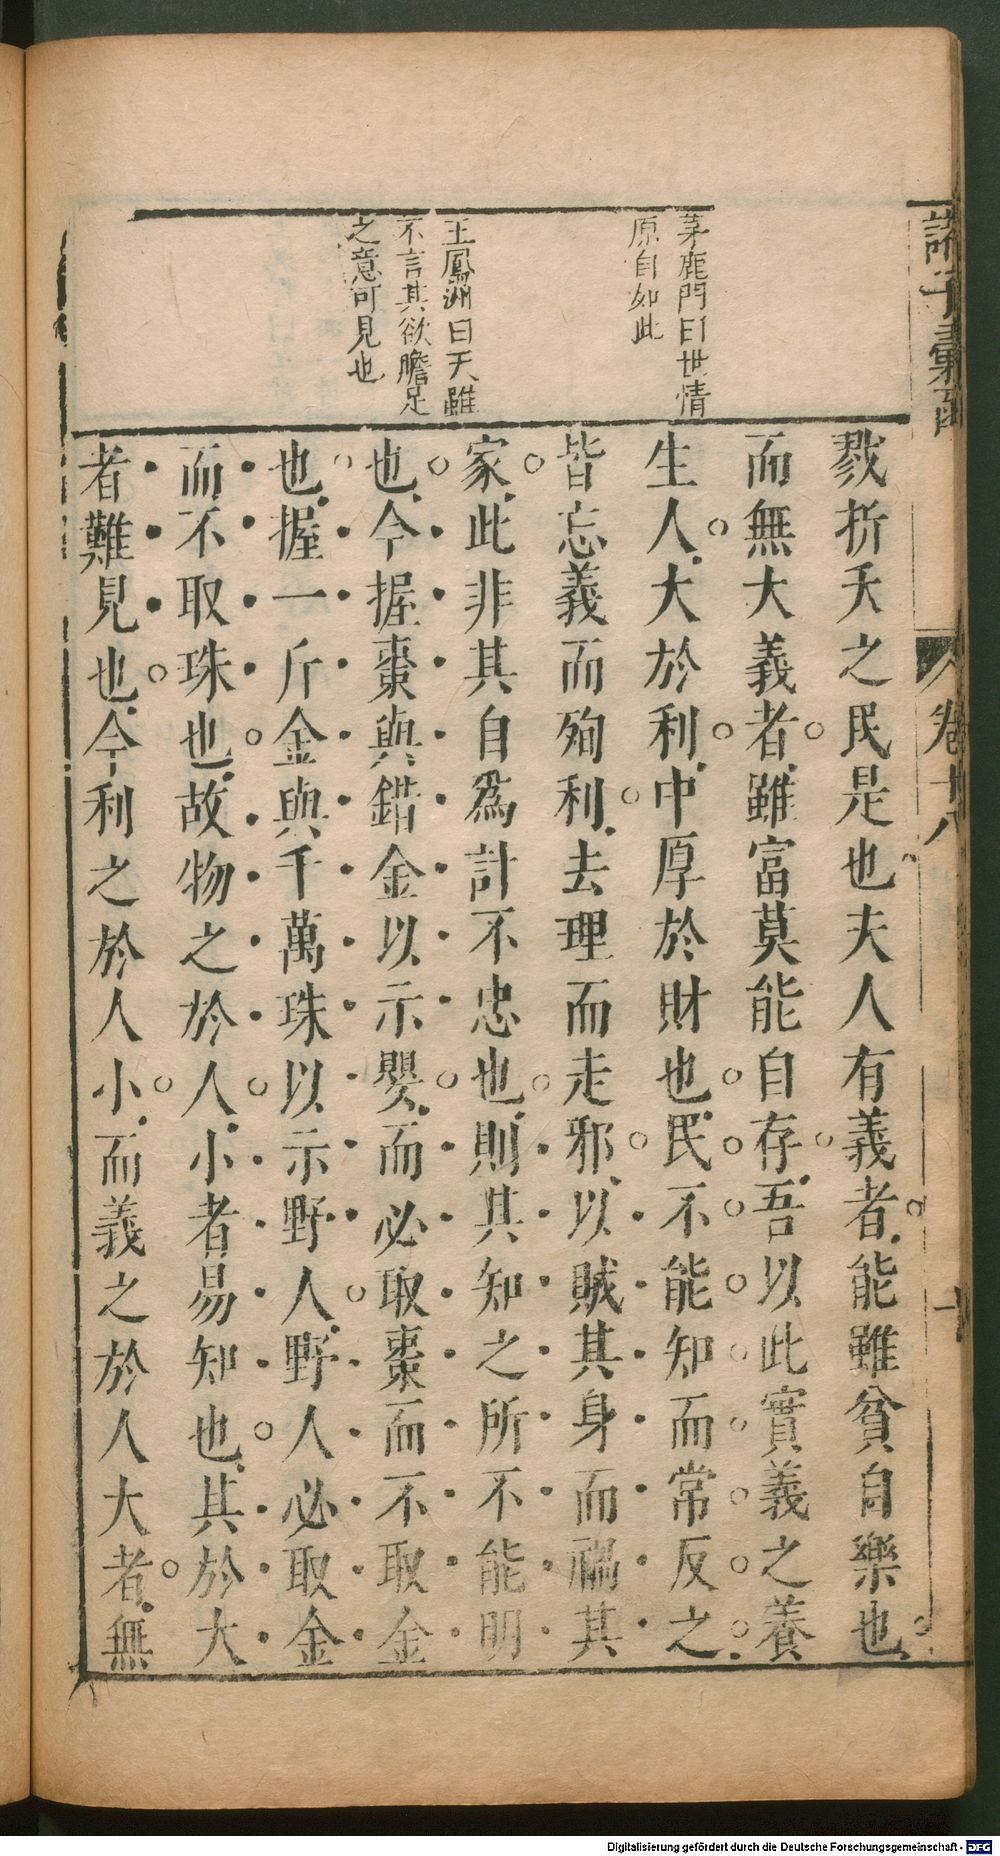 諸子彙函
卷十八
茅鹿門曰世情
原自如此
王鳳洲曰天雖
不言其欲贍足
之意可見也
戮折夭之民是也夫人有義者能雖貧自樂也
而無大義者雖富莫能自存吾以此實義之養
生人大於利中厚於財也民不能知而常反之
皆忘義而殉利去理而走邪以賊其身而禍其
家此非其自爲計不忠也則其知之所不能明
也今握棗與錯金以示嬰而必取棗而不取金
也握一斤金與千萬珠以示野人野人必取金
而不取珠也故物之於人小者易知也其於大
者難見也今利之於人小而義之於人大者無
Digitalisierung gefördert durch die Deutsche Forschungsgemeinschaft - DFG